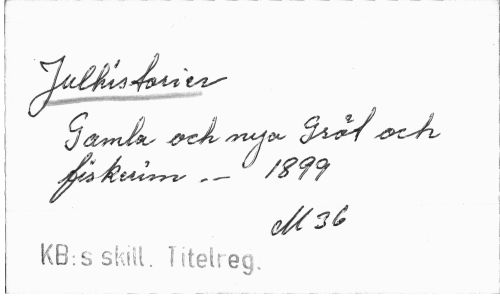 Julhistorier
Gamla och nya Gröt och
fiskerim .— 1899
M 36
KB:s skill. Titelreg.